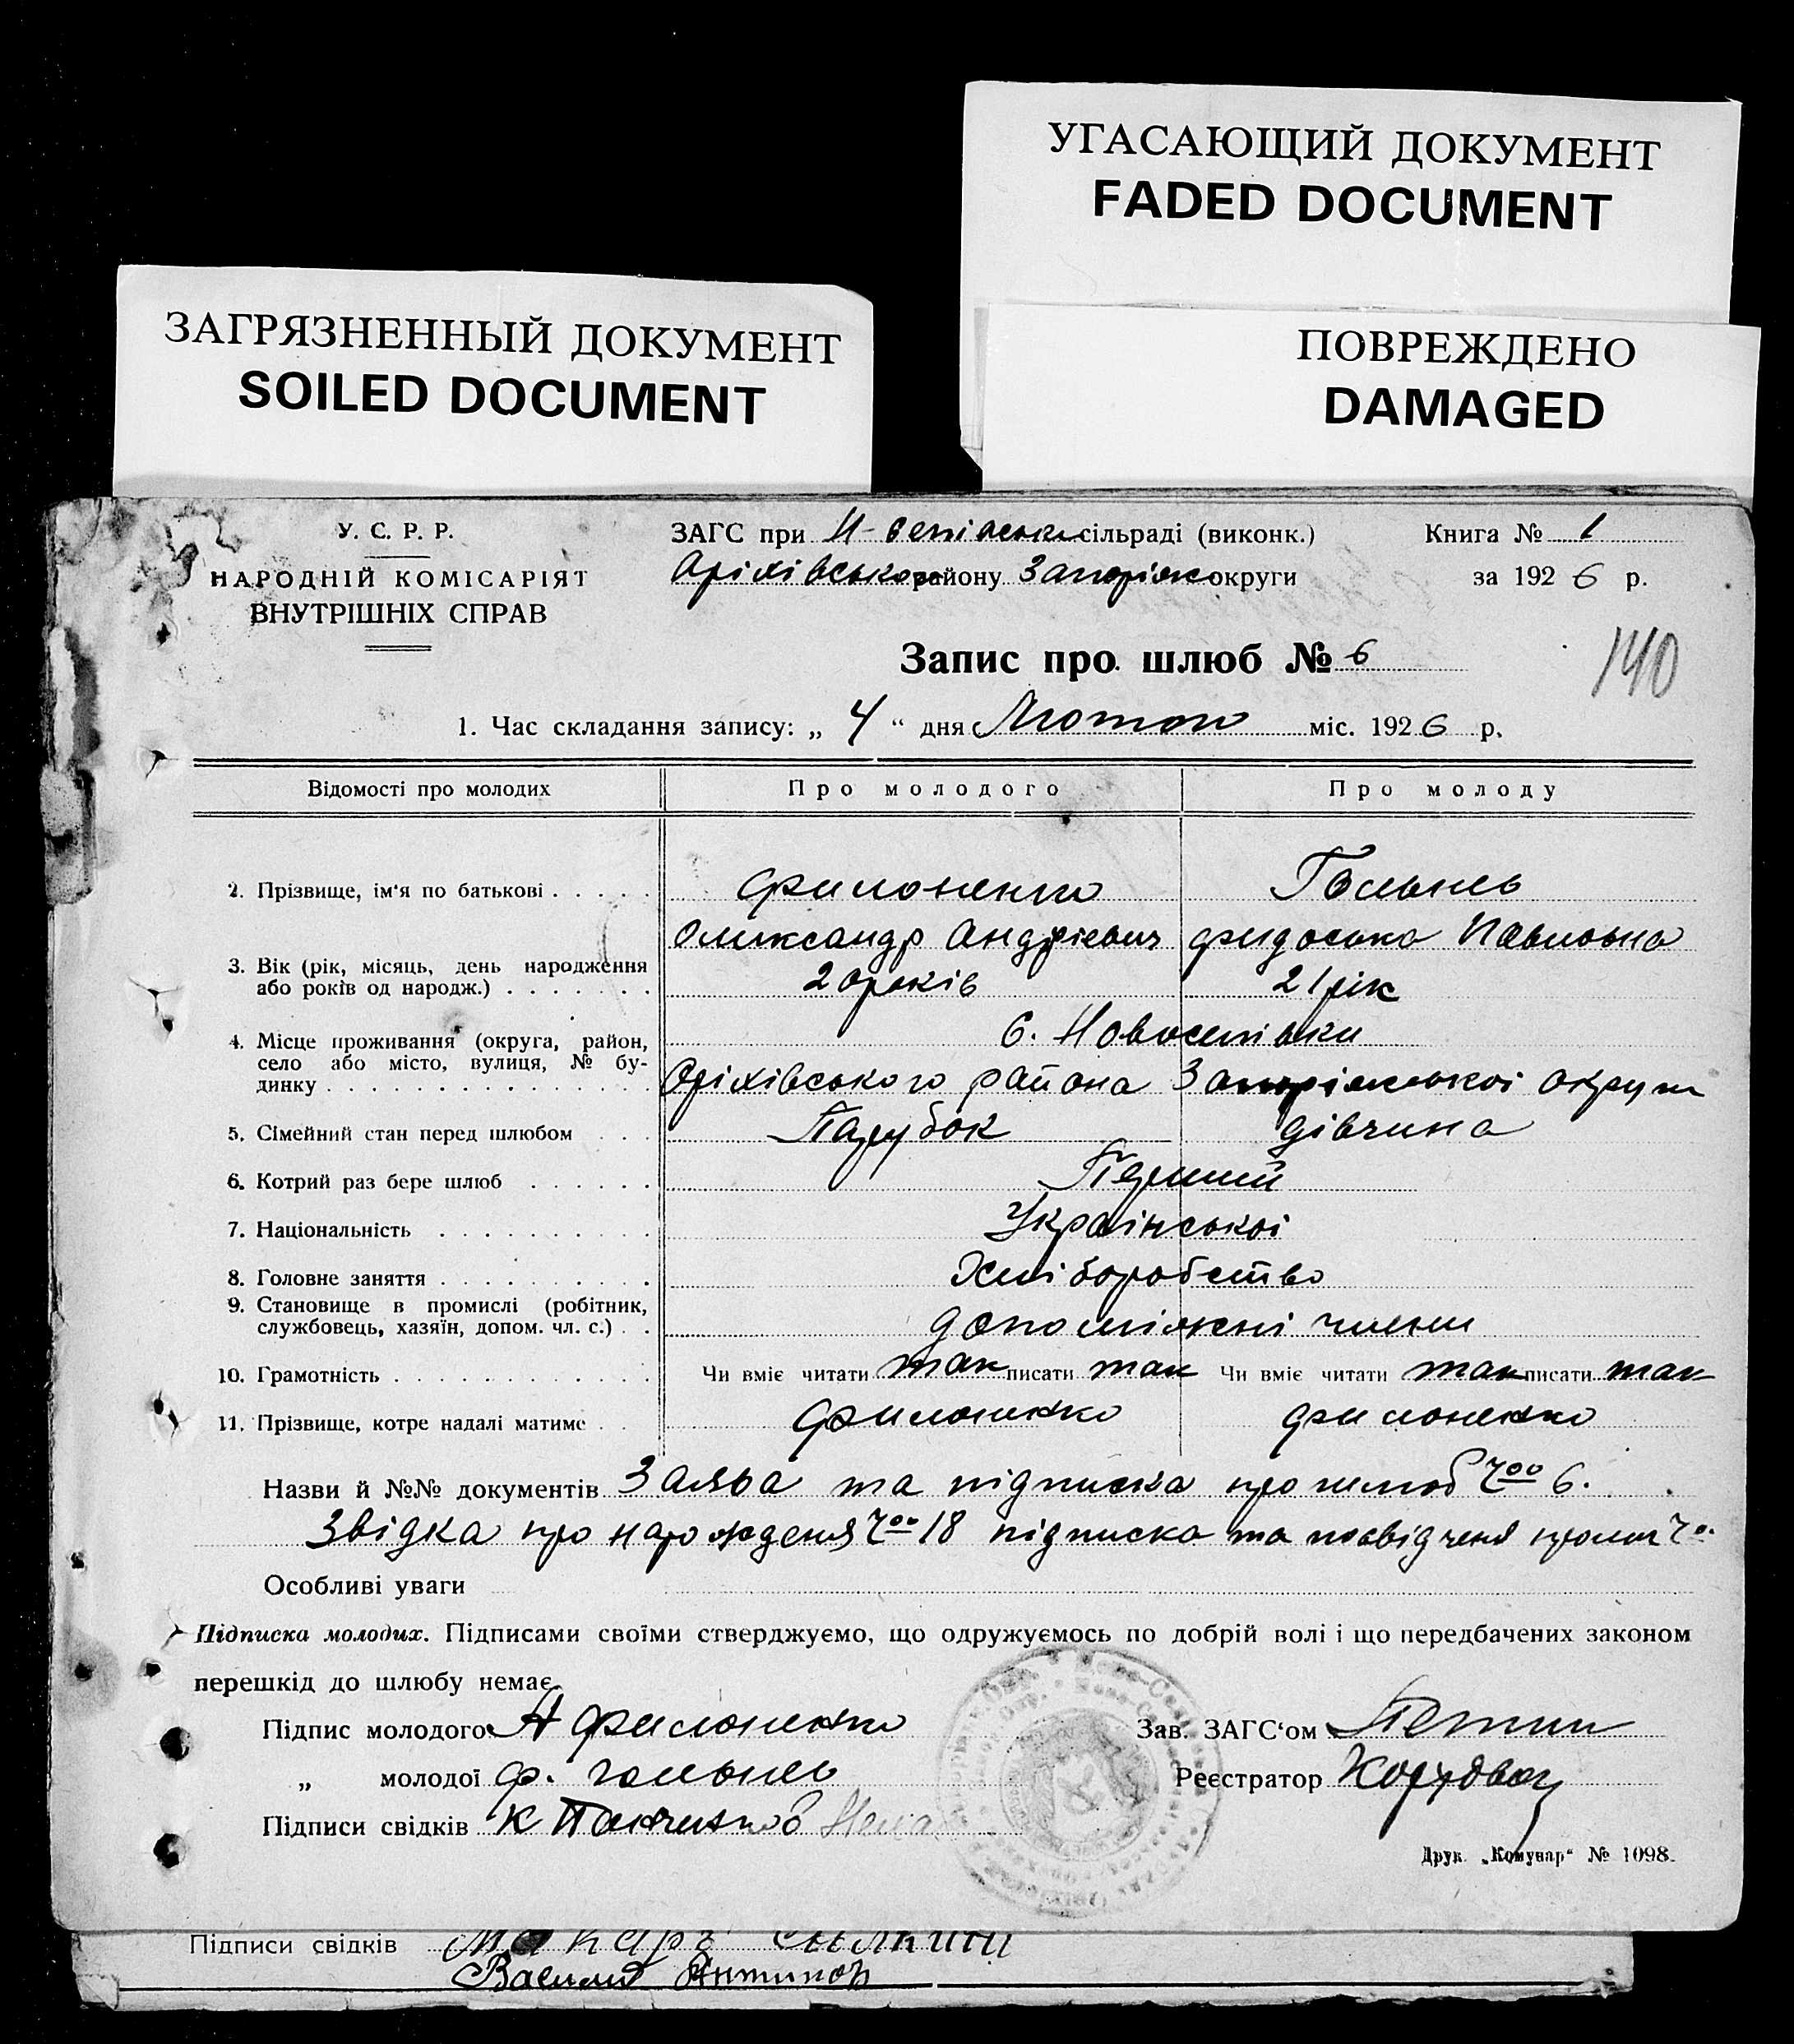 УГАСАЮЩИЙ ДОКУМЕНТ
FADED DOCUMENT
ЗАГРЯЗНЕННЫЙ ДОКУМЕНТ
SOILED DOCUMENT
ПОВРЕЖДЕНО
DAMAGED
У. С. Р. Р.
НАРОДНІЙ КОМІСАРІЯТ
ВНУТРІШНІХ СПРАВ
ЗАГС при сільраді (виконк.)
Оріхівського району Запоріж округи
Книга № 1
за 1926 р.
Запис про шлюб № 6
140
1. Час складання запису: „ 4 “ дня Лютого міс. 1926 р.
Відомості про молодих Про молодого Про молоду
2. Прізвище, ім'я по батькові Филоненко
Олександр Андрієвич Павловна
3. Вік (рік, місяць, день народження
або років од народж.) 20 років 21 рік
4. Місце проживання (округа, район,
село або місто, вулиця, № бу-
динку с. Новоселівки
Оріхівського района Запоріжської округи
5. Сімейний стан перед шлюбом Парубок дівчина
6. Котрий раз бере шлюб Перший
7. Національність Українськоі
8. Головне заняття Хліборобство
9. Становище в промислі (робітник,
службовець, хазяїн, допом. чл. с.) допоміжні члени
10. Грамотність Чи вміє читати так писати так Чи вміє читати так писати так
11. Прізвище, котре надалі матиме Филоненко Филоненко
Назви й №№ документів Заява та підписка про шлюб 6.
Звідка про народженя 18 підписка та посвідченя
Особливі уваги
Підписка молодих. Підписами своїми стверджуємо, що одружуємось по добрій волі і що передбачених законом
перешкід до шлюбу немає.
Підпис молодого А Филоненко
„ молодої Ф.
Підписи свідків К
Зав. ЗАГС'ом
Реєстратор
Друк. „Комунар“ № 1098.
Підписи свідків Макаръ
Василий Антипов